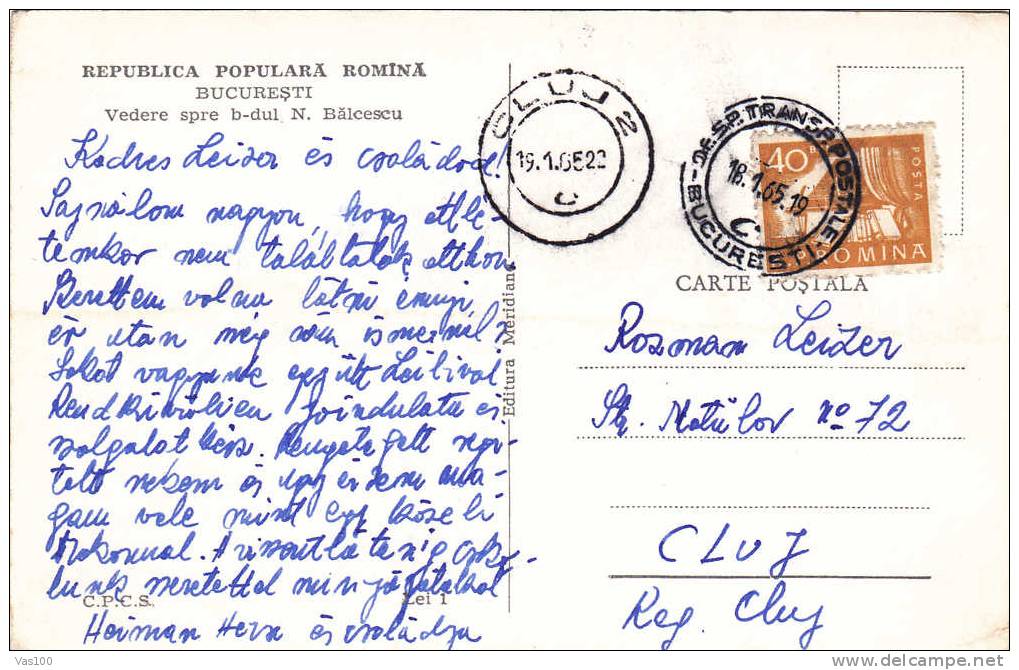 REPUBLICA POPULARĂ ROMÎNĂ
BUCUREŞTI
Vedere spre b-dul N. Bălcescu
Kedves Leizer és családod!
Sajnálom nagyon, hogy ottlé-
temkor nem találtalak otthon
Szerettem volna látni
és után még nem
Sokat vagyunk együtt Leilivel
Rendkivülien joindulatu és
szolgálatkész. Rengeteget segi-
tett nekem és ugy érzem ma-
gam vele mint egy közeli
rokonnal. A viszontlátásig csóko-
lunk szeretettel
Herman Herv és családja
C.P.C.S.
Lei 1
Editura Meridiane
CLUJ 2
19.1.65 22
C
DESP. TRANSP. POSTALE
18.1.65.19
C.
BUCURESTI
40 B
POSTA
R.P.ROMINA
CARTE POŞTALĂ
Rozman Leizer
Str. Motilor no 72
CLUJ
Reg. Cluj
Vas100
http://www.delcampe.net